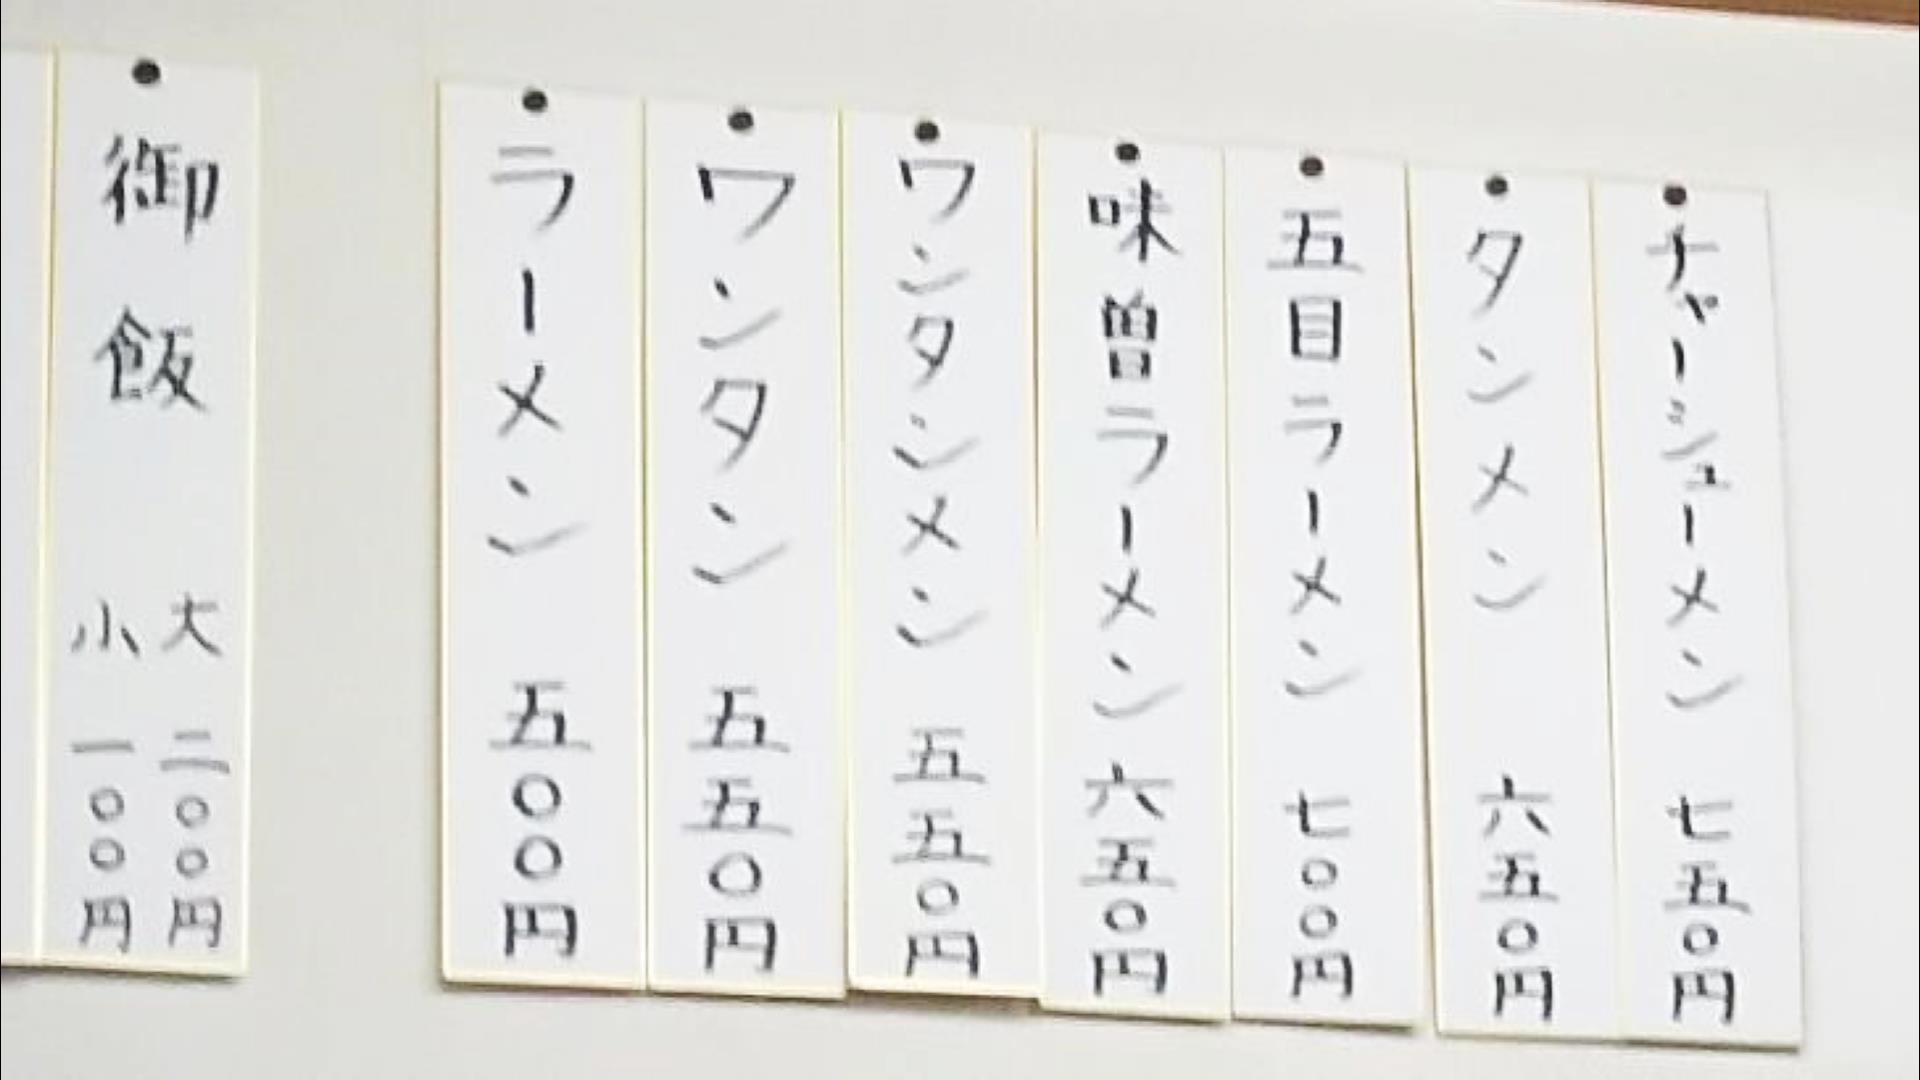 チャーシューメン 七五〇円
タンメン 六五〇円
五目ラーメン 七〇〇円
味曽ラーメン 六五〇円
ワンタンメン 五五〇円
ワンタン 五五〇円
ラーメン 五〇〇円
御飯
大 二〇〇円
小 一〇〇円